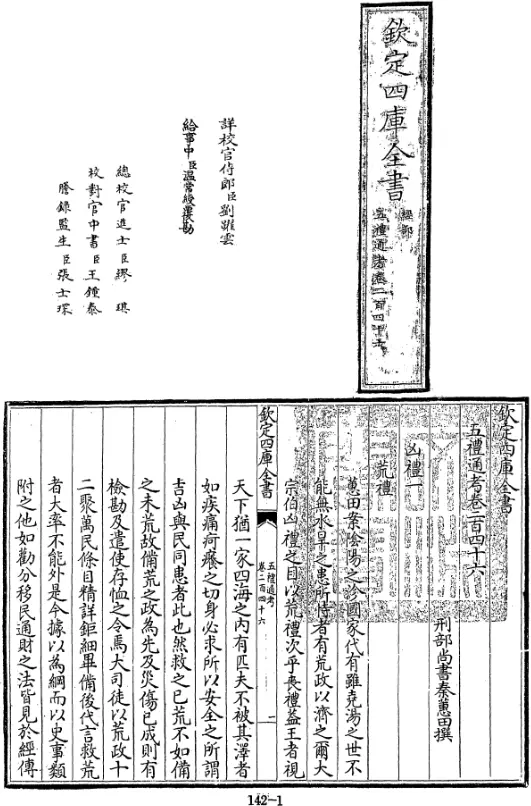 欽定四庫全書
經部
五禮通考卷二百四十六
詳校官侍郎臣劉躍雲
給事中臣溫常綬覆勘
總校官進士臣繆琪
校對官中書臣王鍾泰
謄錄監生臣張士琛
欽定四庫全書
五禮通考卷二百四十六
刑部尚書秦蕙田撰
凶禮一
荒禮
蕙田案陰陽之沴國家代有雖堯湯之世不
能無水旱之患所恃者有荒政以濟之爾大
宗伯凶禮之目以荒禮次乎喪禮蓋王者視
欽定四庫全書
五禮通考
卷二百四十六
一
天下猶一家四海之內有匹夫不被其澤者
如疾痛疴癢之切身必求所以安全之所謂
吉凶與民同患者此也然救之已荒不如備
之未荒故備荒之政為先及災傷已成則有
檢勘及遣使存恤之令焉大司徒以荒政十
二聚萬民條目精詳鉅細畢備後代言救荒
者大率不能外是今據以為綱而以史事類
附之他如勸分移民通財之法皆見於經傳
142-1